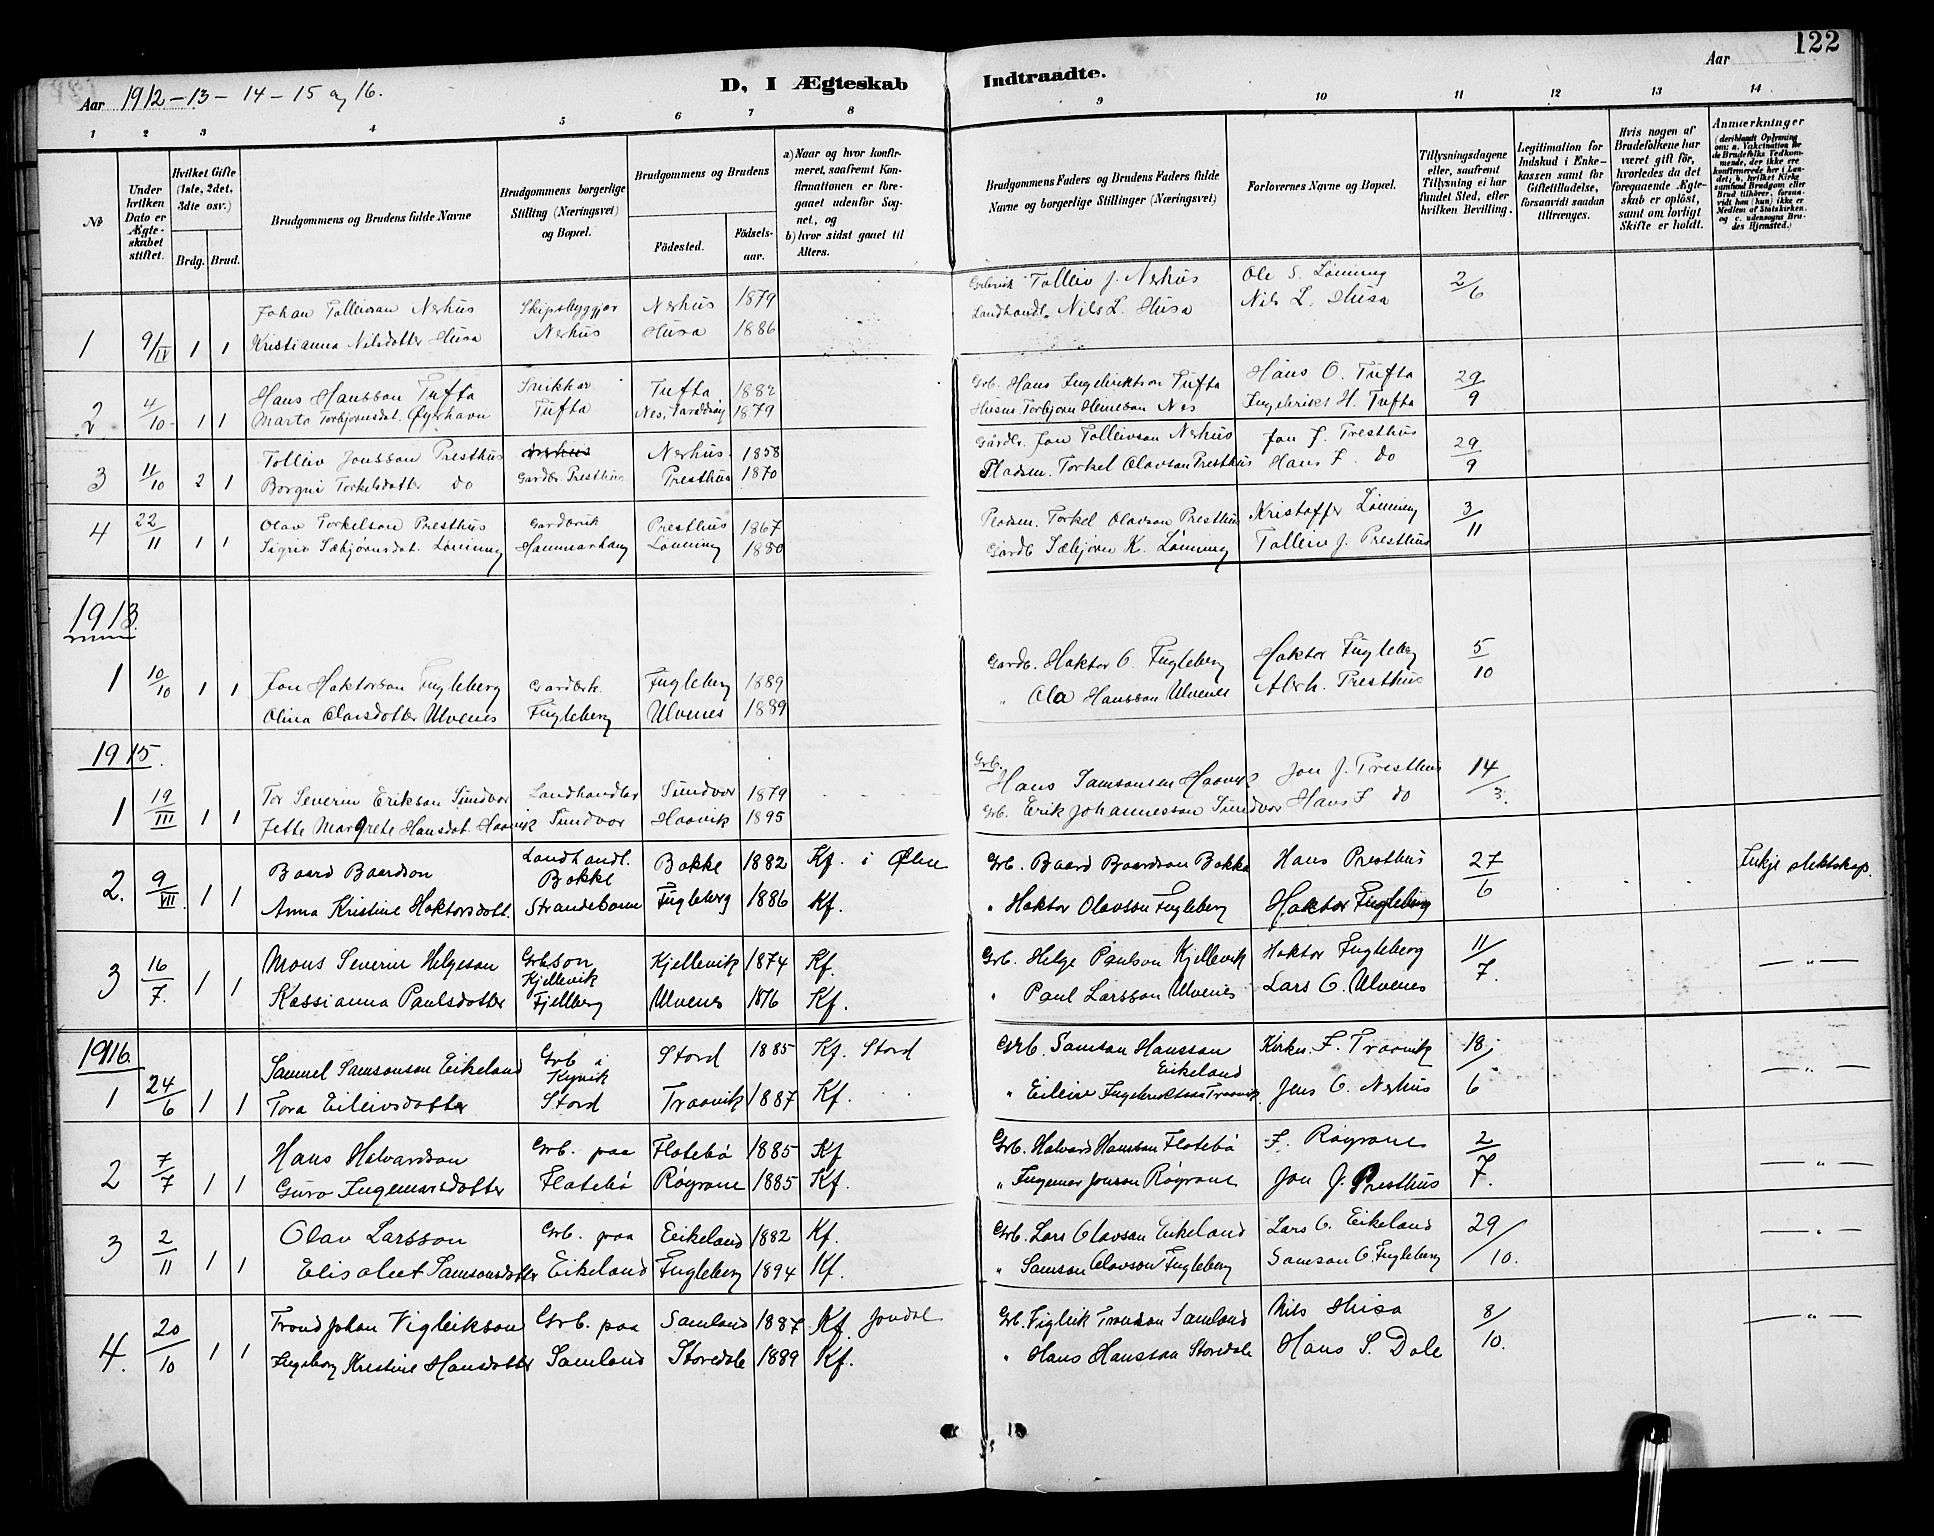 122
Aar 1912 - 13 - 14 - 15 og 16.
D, I Ægteskab Indtraadte.
Aar
1 2 3 4 5 6 7 8 9 10 11 12 13 14
No
Under hvilken Dato er Ægteskabet stiftet.
Hvilket Gifte (1ste, 2det, 3die osv.)
Brdg. Brud.
Brudgommens og Brudens fulde Navne
Brudgommens borgerlige Stilling (Næringsvei) og Bopæl.
Brudgommens og Brudens
Födested. Födselsaar.
a) Naar og hvor konfirmeret, saafremt Konfirmationen er foregaaet udenfor Sognet, og
b) hvor sidst gaaet til Alters.
Brudgommens Faders og Brudens Faders fulde Navne og borgerlige Stillinger (Næringsvei)
Forlovernes Navne og Bopæl.
Tillysningsdagene eller, saafremt Tillysning ei har fundet Sted, efter hvilken Bevilling.
Legitimation for Indskud i Enkekassen samt for Giftetilladelse, forsaavidt saadan tiltrænges.
Hvis nogen af Brudefolkene har været gift för, hvorledes da det foregaaende Ægteskab er oplöst, samt om lovligt Skifte er holdt.
Anmærkninger (deriblandt Oplysning om: a. Vakcination for de Brudefolks Vedkommende, der ikke ere konfirmerede her i Landet, b. hvilket Kirkesamfund Brudgom eller Brud tilhörer, forsaavidt han (hun) ikke er Medlem af Statskirken, og c. udensogns Brudes Hjemsted.)
Johan Tolleivson Nerhus Skipsbyggjar Nerhus 1879 Tolleiv J. Nerhus Ole S. Lønning 2/6
1 9/IV 1 1 Kristianna Nilsdotter Husa Nerhus Husa 1886 Landhandl. Nils L. Husa Nils L. Husa
Hans Hansson Tufta Snikkar Tufta 1882 Grb. Hans Ingebriktson Tufta Hans O. Tufta 29/9
2 4/10 1 1 Marta Torbjørnsdat. Øyrhavn Tufta Nes, 1879 Husm. Torbjørn Heineson Nes Ingebrikt H. Tufta
Tolleiv Jonsson Presthus Nerhus Nerhus 1858 Gardbr. Jon Tolleivson Nerhus Jon J. Presthus 29/9
3 11/10 2 1 Borgni Torkelsdotter do Gardbr. Presthus Presthus 1870 Pladsm. Torkel Olavson Presthus Hans J. do
Olav Torkelson Presthus Gardbruk Presthus 1867 Pladsm. Torkel Olavson Presthus Kristoffer Lønning 3/11
4 22/11 1 1 Sigrid Sæbjørnsdat. Lønning Hammarhaug Lønning 1880 Gardb. Sæbjørn K. Lønning Tolleiv J. Presthus
1913.
1 10/10 1 1 Jon Haktorson Fugleberg Gardbrk. Fugleberg 1889 Gardb. Haktor O. Fugleberg Haktor Fugleberg 5/10
Olina Olavsdotter Ulvenes Fugleberg Ulvenes 1889 " Ola Hansson Ulvenes Abrh. Presthus
1915.
Tor Severin Erikson Sundvor Landhandlar Sundvor 1879 Grb. Hans Samsonsen Haavik Jon J. Presthus 14/3.
1 19/III 1 1 Jette Margrete Hansdat. Haavik Sundvor Haavik 1895 Grb. Erik Johannesson Sundvor Hans J do
Baard Baardson Landhandl. Bakke Bakke 1882 Kf. i Ølve Grb. Baard Baardson Bakke Hans Presthus 27/6 Inkje slektskap.
2. 9/VII 1 1 Anna Kristine Haktorsdott. Strandebarm Fugleberg 1886 Kf. " Haktor Olavson Fugleberg Haktor Fugleberg
Mons Severin Helgeson Grbson Kjellevik Kjellevik 1874 Kf. Grb. Helge Paulson Kjellevik Haktor Fugleberg 11/7. — " —
3 16/7. 1 1 Kassianna Paulsdotter Fjelberg Ulvenes 1876 Kf. " Paul Larsson Ulvenes Lars O. Ulvenes
1916.
Samuel Samsonson Eikeland Grb i Kyvik Stord 1885 Kf. Stord Grb. Samson Hansson Eikeland Kirkes. F. Traavik 18/6 — " —
1 24/6 1 1 Tora Eileivsdotter Stord Traavik 1887 Kf. " Eileiv Ingebriktson Traavik Jens O. Nerhus
Hans Halvardson Grb. paa Flatebø 1885 Kf Grb. Halvard Hansson Flatebø F. Røgrane 2/7. — " —
2 7/7 1 1 Guro Ingemarsdotter Flatebø Røgrane 1885 Kf. " Ingemar Jonson Røgrane Jon J. Presthus
Olav Larsson Grb. paa Eikeland 1882 Kf. Grb. Lars Olavson Eikeland Lars O. Eikeland 29/10. — " —
3 2/11 1 1 Elisabet Samsonsdotter Eikeland Fugleberg 1894 Kf. " Samson Olavson Fugleberg Samson O Fugleberg
Trond Johan Vigleikson Grb. paa Samland 1887 Kf. Jondal Grb. Vigleik Trondson Samland Nils Husa 8/10. — " —
4. 20/10 1 1 Ingeborg Kristine Hansdotter Samland Storedale 1889 Kf. " Hans Hansson Storedale Hans S. Dale